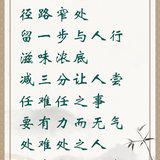 径路窄处
留一步与人行
滋味浓底
减三分让人尝
任难任之事
要有力而无气
处难处之人